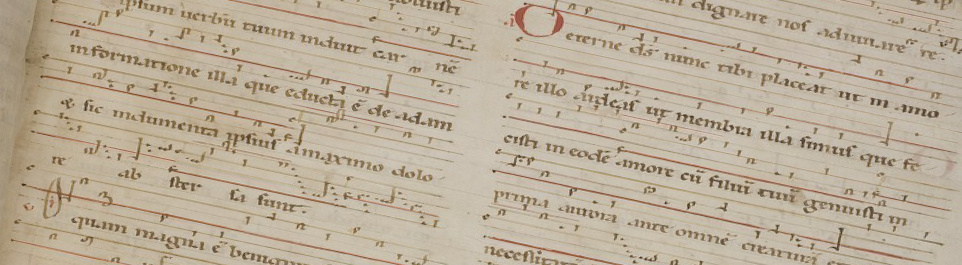 ipsum uerbū tuum induit car nē
in formatione illa que educta ē de adam
& sic indumenta ipsius a maximo dolo
re ab ster sa sunt.
quam magna ē benig
dignare nos adiuuare re
O eterne ds̄ nunc tibi placeat ut in amo
re illo ardeas ut membra illa simus que fe
cisti in eodē amore cū filiū tuū genuisti in
prima aurora ante omnē creaturā
necessitatē